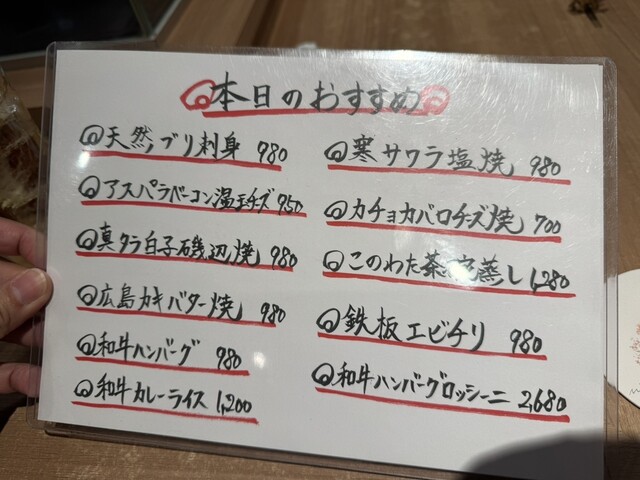 本日のおすすめ
天然ブリ刺身 980
アスパラベーコン温玉チーズ 950
真タラ白子磯辺焼 980
広島カキバター焼 980
和牛ハンバーグ 980
和牛カレーライス 1,200
寒サワラ塩焼 980
カチョカバロチーズ焼 700
このわた茶碗蒸し 1,280
鉄板エビチリ 980
和牛ハンバーグロッシーニ 2,680